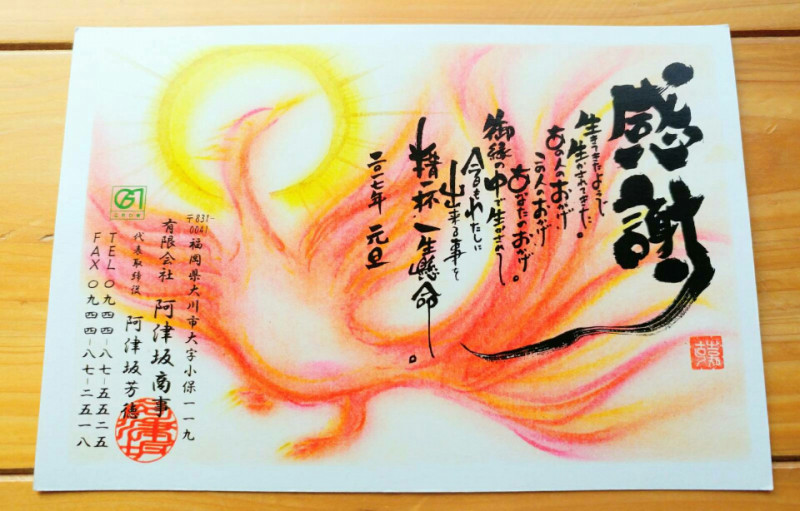 感謝
生きてきたようで
生かされてきた。
あの人のおかげ
この人のおかげ
あなたのおかげ。
御縁の中で生かされし
今あるわたしに
出来る事を
精一杯、一生懸命。
二〇一七年 元旦
〒831-0041
福岡県大川市大字小保一一九
有限会社 阿津坂商事
代表取締役 阿津坂芳徳
TEL〇九四四-八七-五五二五
FAX〇九四四-八七-二五一八
阿津坂